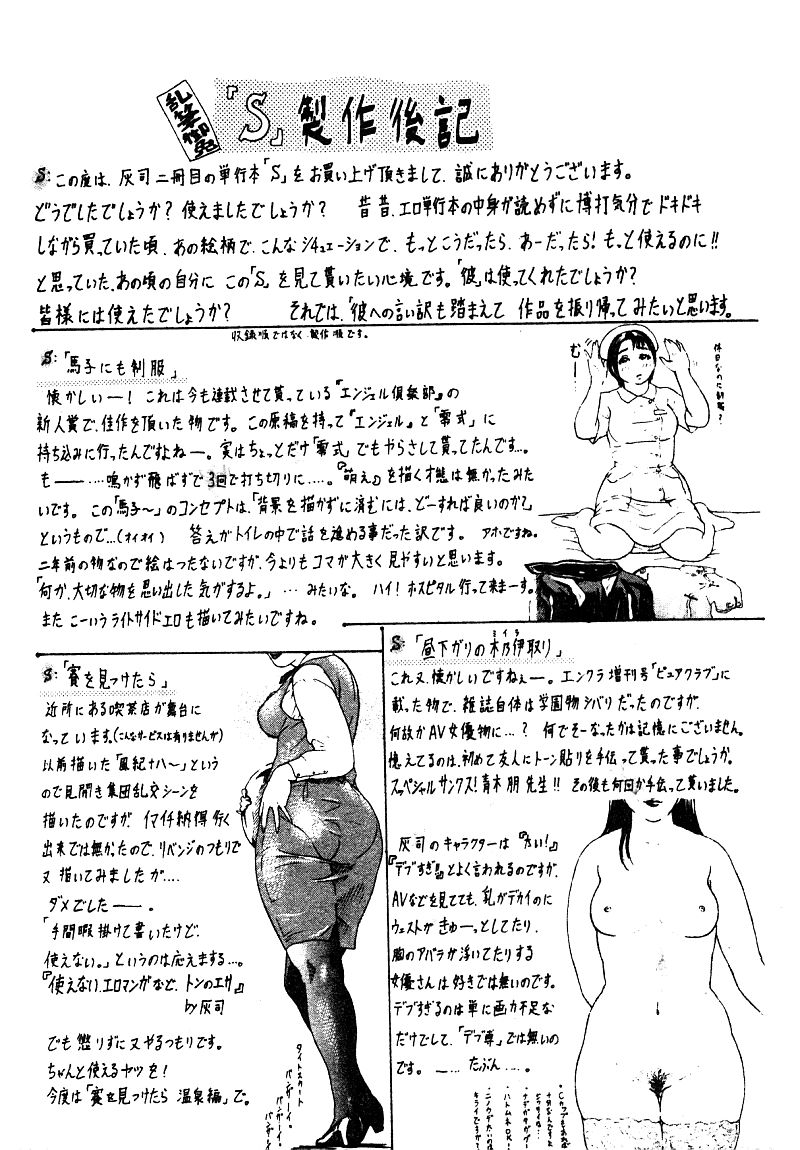 乱筆御免
『S』製作後記
S:この度は、灰司二冊目の単行本「S」をお買い上げ頂きまして、誠にありがとうございます。
どうでしたでしょうか？使えましたでしょうか？ 昔昔、エロ単行本の中身が読めずに博打気分でドキドキ
しながら買っていた頃、あの絵柄で、こんなシチュエーションで、もっとこうだったら、あーだったら！もっと使えるのに!!
と思っていた、あの頃の自分に この「S」を見て貰いたい心境です。「彼」は使ってくれたでしょうか？
皆様には使えたでしょうか？ それでは、「彼」への言い訳も踏まえて 作品を振り帰ってみたいと思います。
収録順ではなく、製作順です。
S:「馬子にも制服」
懐かしいー！これは今も連載させて貰っている『エンジェル倶楽部』の
新人賞で、佳作を頂いた物です。この原稿を持って『エンジェル』と「零式」に
持ち込みに行ったんですよねー。実はちょっとだけ「零式」でもやらさして貰ってたんです…。
も――……鳴かず飛ばずで3回で打ち切りに……。『萌え』を描く才態は無かったみた
いです。この「馬子〜」のコンセプトは、「背景を描かずに済むには、どーすれば良いのか？」
というもので…(オイオイ) 答えがトイレの中で話を進める事だった訳です。アホですね。
二年前の物なので絵はつたないですが、今よりもコマが大きく見やすいと思います。
「何か、大切な物を思い出した気がするよ。」…みたいな。ハイ！ホスピタル行って来まーす。
また こーいうライトサイドエロも描いてみたいですね。
む――
休日なのに制服？
S:「賽を見つけたら」
近所にある喫茶店が舞台に
なっています。(こんなサービスは有りませんが)
以前描いた「風紀ナハ〜」という
ので見開き集団乱交シーンを
描いたのですが、イマイチ納得行く
出来では無かったので、リベンジのつもりで
又描いてみましたが…。
ダメでした――。
「手間暇掛けて書いたけど、
使えない。」というのは応えまする…。
『使えない、エロマンガなど、トンのエサ』
by灰司
でも懲りずに又やるつもりです。
ちゃんと使えるヤツを！
今度は「賽を見つけたら 温泉編」で。
タイトスカート
バンザーイ。
バンザーイ。
バンザーイ
S「昼下がりの木乃伊取り」
ミイラ
これ又、懐かしいですねぇー。エンクラ増刊号「ピュアクラブ」に
載った物で、雑誌自体は学園物シバリだったのですが、
何故かAV女優物に…？何でそーなったかは記憶にございません。
憶えてるのは、初めて友人にトーン貼りを手伝って貰った事でしょうか。
スペシャルサンクス！青木朋先生!! その後も何回か手伝って貰いました。
灰司のキャラクターは『太い！』
『デブすぎ!!』とよく言われるのですが、
AVなどを見てても、乳がデカイのに
ウエストがきゅーっとしてたり、
胸のアバラが浮いてたりする
女優さんは好きでは無いのです。
デブすぎるのは単に画力不足な
だけでして、「デブ専」では無いの
です。―…たぶん…。
・Cカップもあれば
・ハトムネOK！
キライですか？